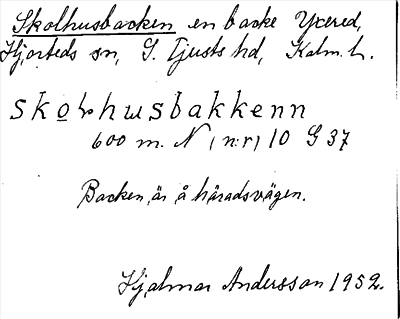 Skolhusbacken en backe Yxered,
Hjorteds sn, S. Tjusts hd, Kalm. l.
skolhusbakkenn
600 m. N (nr) 10 G 37
Backen är å häradsvägen.
Hjalmar Andersson 1952.